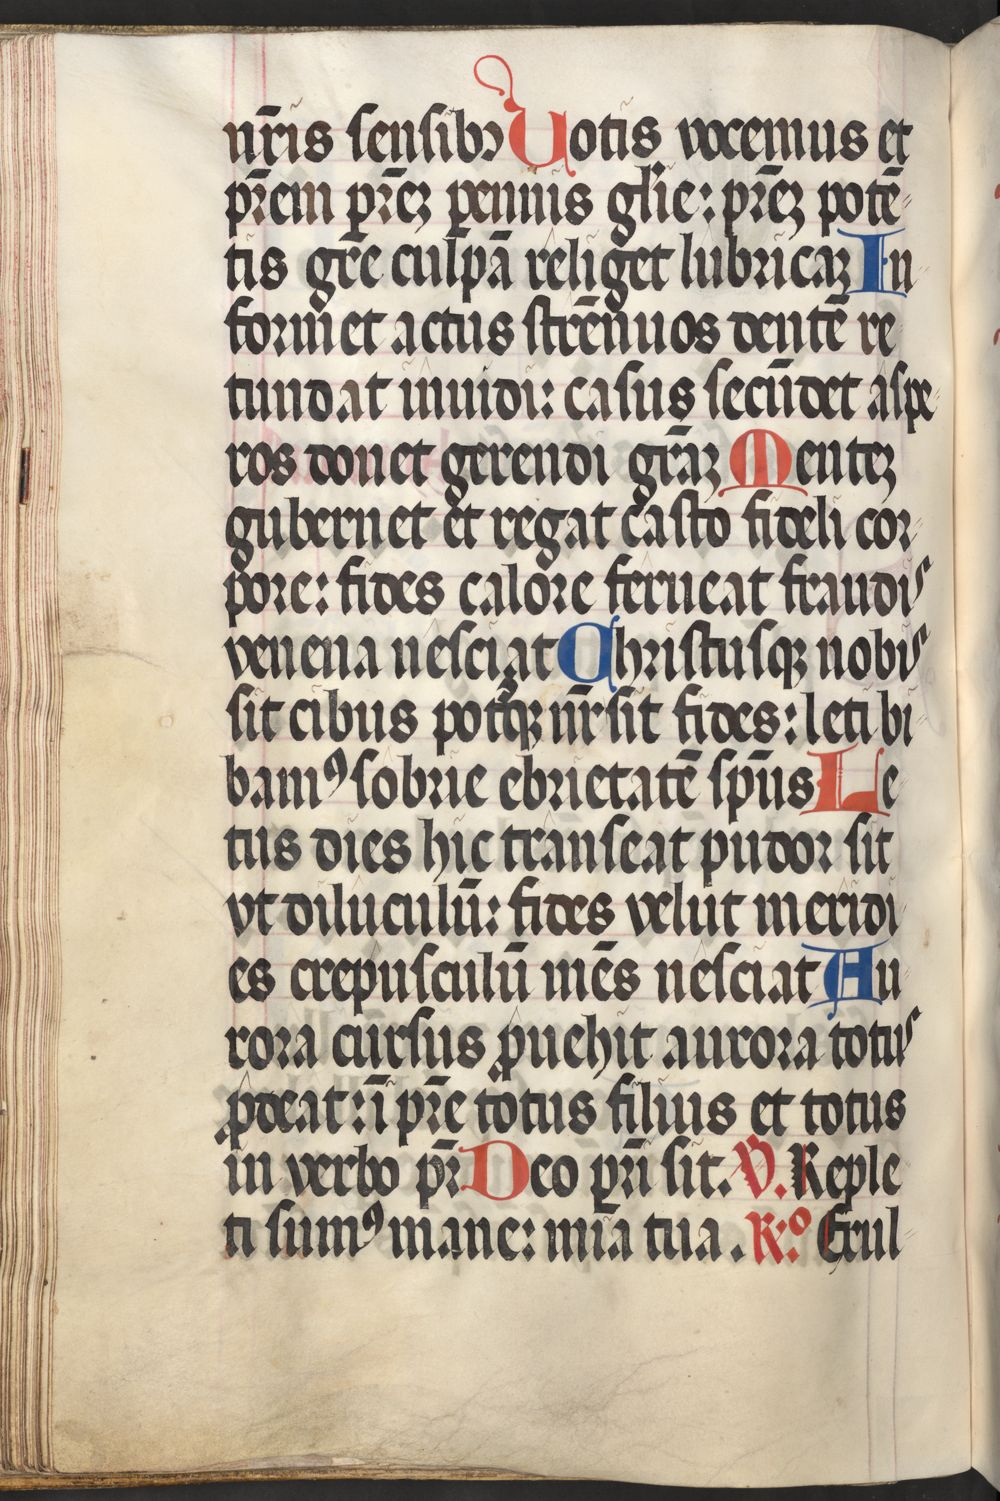 nr̄is sensibꝫ Uotis vocemus et
pr̄em pr̄eꝫ pennis gl̄ie: pr̄eꝫ potē
tis gr̄e culpā religet lubricaꝫ In
formet actus strēnuos dentē re
tundat inuidi: casus secūdet aspe
ros donet gerendi gr̄aꝫ Menteꝫ
gubernet et regat casto fideli cor
pore: fides calore ferueat fraudis
venena nesciat Christusqꝫ nobis
sit cibus potusqꝫ nr̄ sit fides: leti bi
bamꝰ sobrie ebrietatē sp̄us Le
tus dies hic transeat pudor sit
vt diluculū: fides velut meridi
es crepusculū mēs nesciat Au
rora cursus ꝓuehit aurora totus
ꝓdeat: ī pr̄e totus filius et totus
in verbo pr̄ Deo pr̄i sit. V. Reple
ti sumꝰ mane: mīa tua. R.o Exul